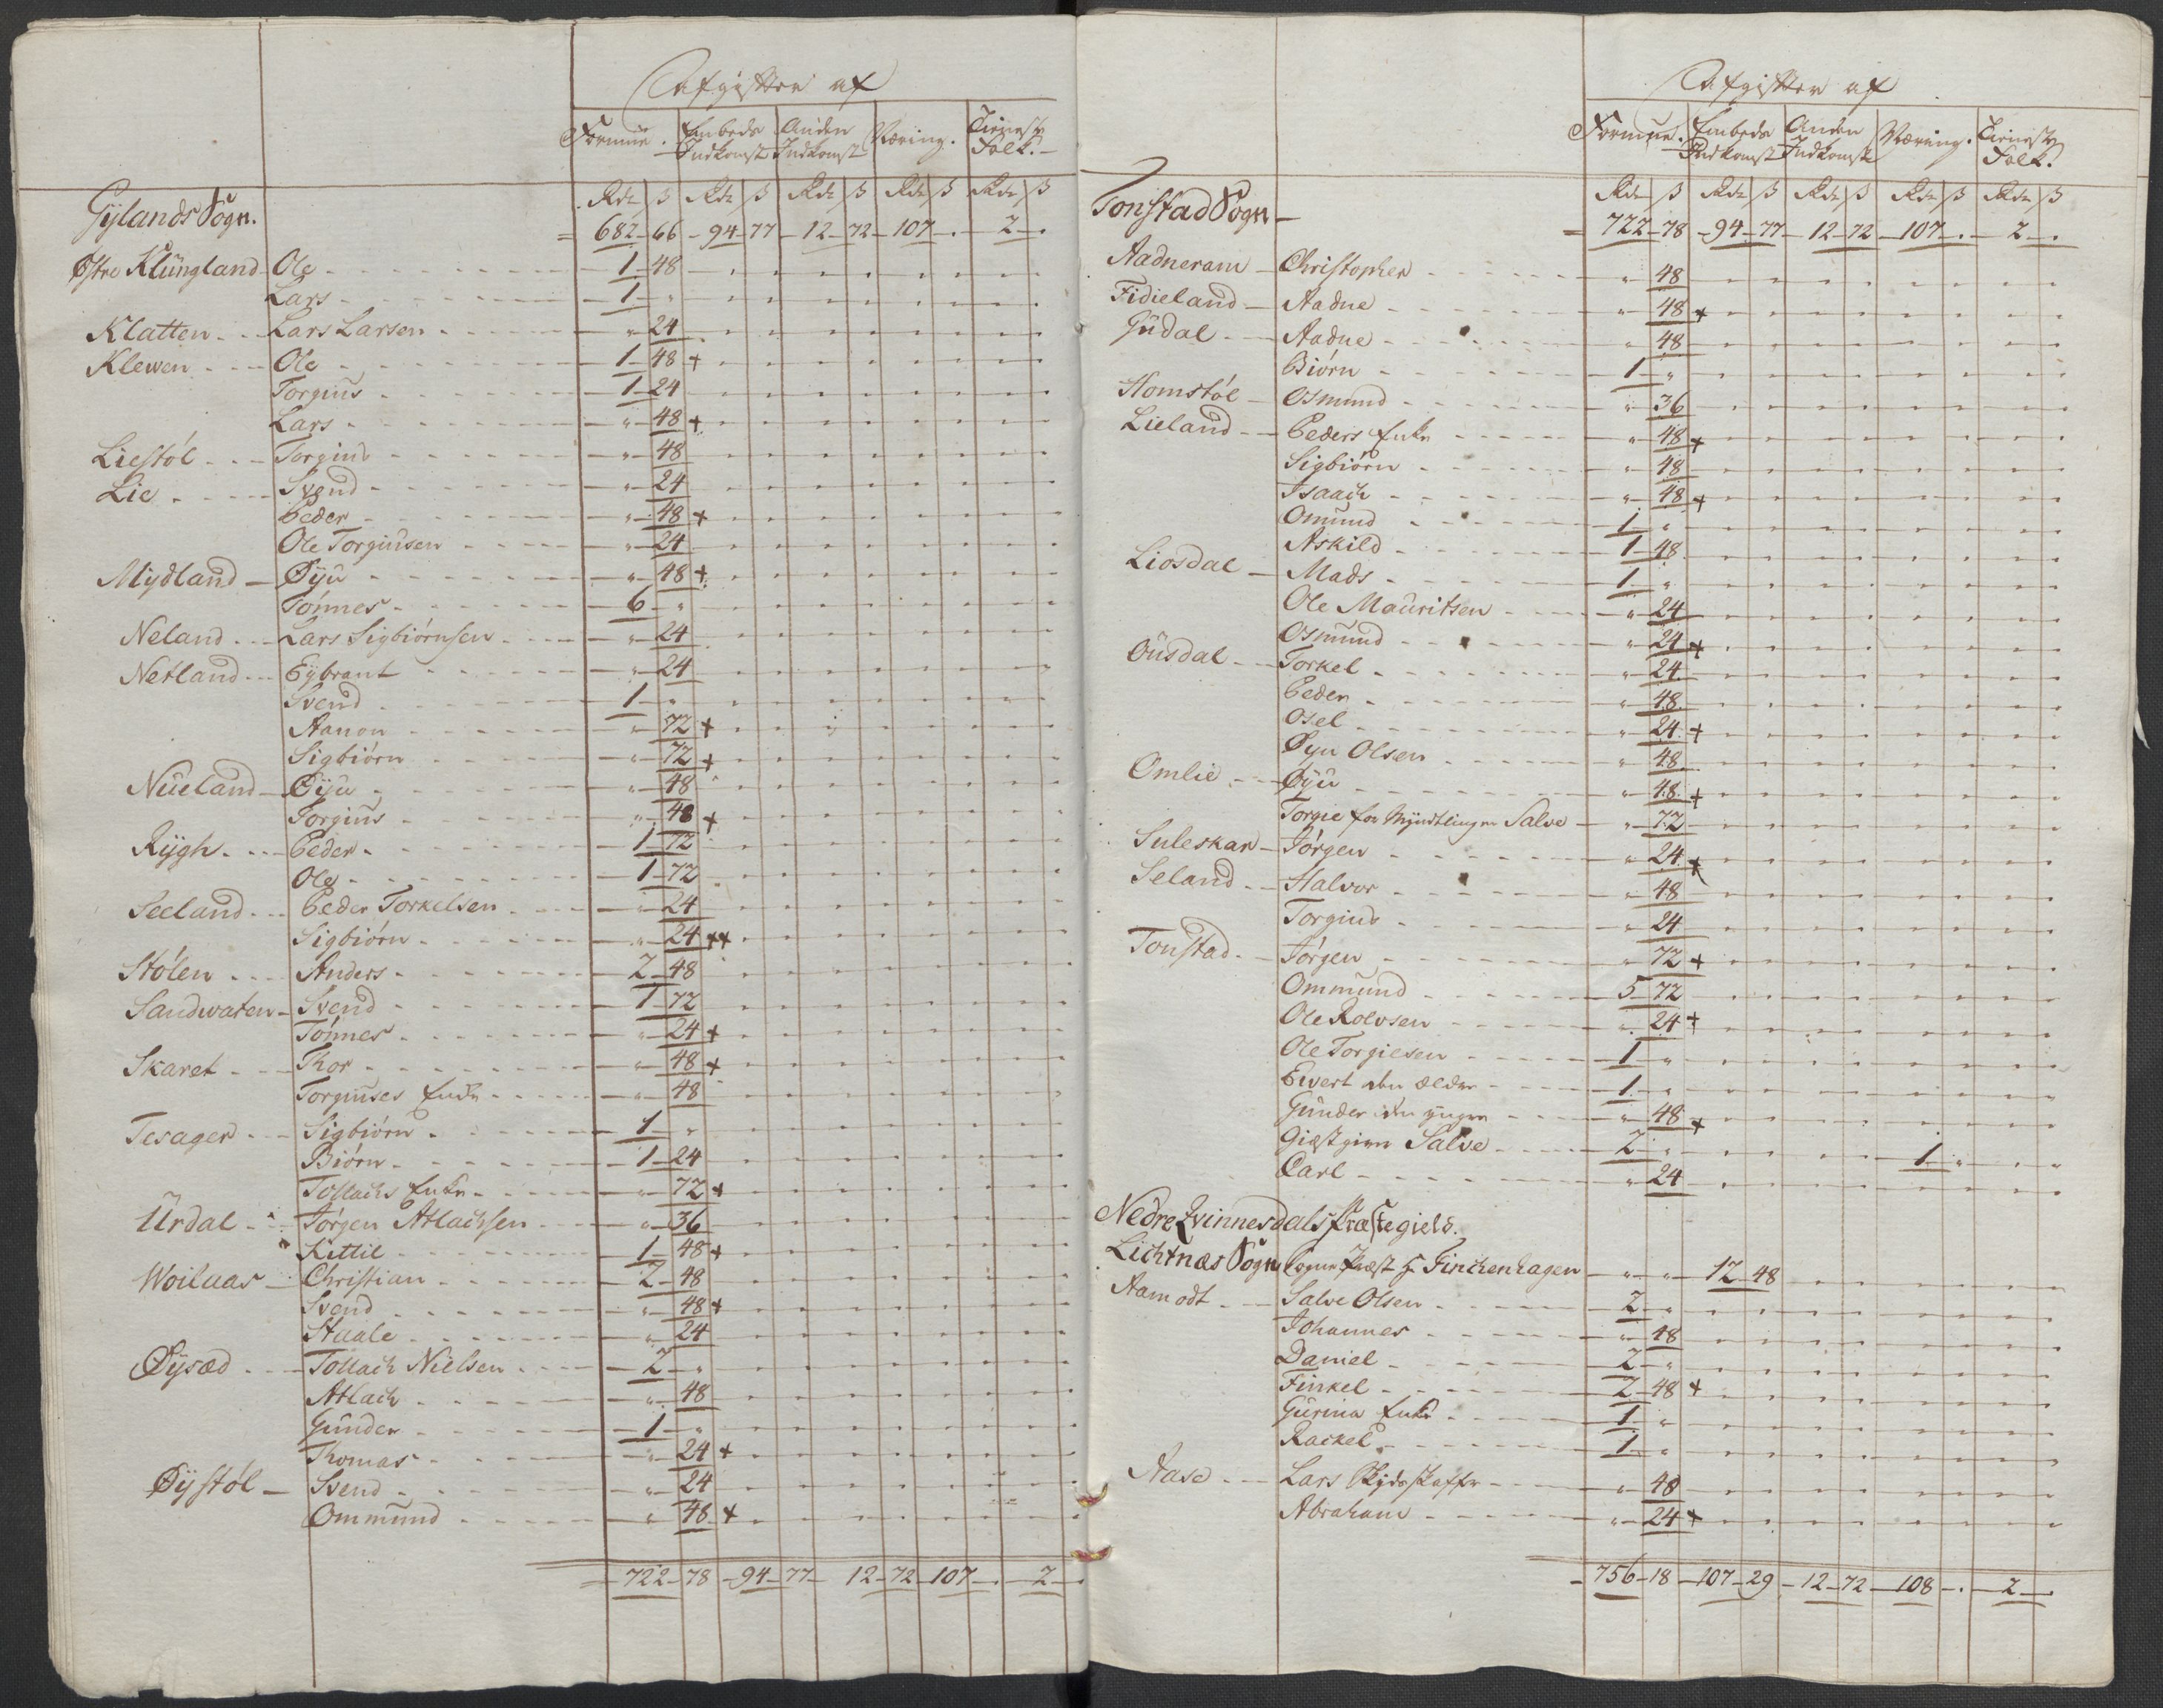 Afgifter af
Formue. Embeds Indkomst Anden Indkomst Næring. Tieneste Folk.
Rdr ß Rdr ß Rdr ß Rdr ß Rdr ß
Gylands Sogn. 682 66 94 77 12 72 107 . 2 .
Østre Klungland Ole 1 48
Lars 1 "
Klatten Lars Larsen " 24
Klewen Ole 1 48 +
Torgius 1 24
Lars " 48 +
Liestøl Torgius " 48
Lie Svend " 24
Peder " 48 +
Ole Torgiusen " 24
Mydland Øyu " 48 +
Tønnes 6 "
Neland Lars Sigbiørnsen " 24
Netland Eybrant " 24
Svend 1 "
Aanon " 72 +
Sigbiørn " 72 +
Nueland Øyu " 48
Torgius " 48 +
Rygh Peder 1 72
Ole 1 72
Seeland Peder Torkelsen " 24
Sigbiørn " 24 ++
Stølen Anders 2 48
Sandwaten Svend 1 72
Tønnes " 24 +
Skaret Thor " 48 +
Torgiuses Enke " 48
Tesager Sigbiørn 1 "
Biørn 1 24
Tollachs Enke " 72 +
Urdal Jørgen Atlachsen " 36
Kittil 1 48 +
Woilaas Christian 2 48
Svend " 48 +
Staale " 24
Øysæd Tollach Nielsen 2 "
Atlach " 48
Gunder 1 "
Thomas " 24 +
Øystøl Svend " 24
Ommund " 48 +
722 78 94 77 12 72 107 . 2 .
Afgifter af
Formue. Embeds Indkomst Anden Indkomst Næring. Tieneste Folk.
Rdr ß Rdr ß Rdr ß Rdr ß Rdr ß
Tonstad Sogn 722 78 94 77 12 72 107 . 2 .
Aadneram Christopher " 48
Fidieland Aadne " 48 +
Gudal Aadne " 48
Biørn 1 "
Homstøl Osmund " 36
Lieland Peders Enke " 48 +
Sigbiørn " 48
Isaach " 48 +
Omund 1 "
Askild 1 48
Liosdal Mads 1 "
Ole Mauritsen " 24
Osmund " 24 +
Ousdal Torkel " 24
Peder " 48
Osel " 24 +
Øyu Olsen " 48
Omlie Øyu " 48 +
Torgie for Myndtlingen Salve " 72
Suleskar Jørgen " 24 +
Seland Halvor " 48
Torgius " 24
Tonstad Jørgen " 72 +
Ommund 5 72
Ole Rolvsen " 24 +
Ole Torgiesen 1 "
Ewert den ældre 1 "
Gunder den yngre " 48 +
Giæstgiver Salve 2 " 1 "
Carl " 24
Nedre Qvinnesdals Præstegield.
Lichtnæs Sogn Sogne Præst Hr Finchenhagen " " 12 48
Aamodt Salve Olsen 2 "
Johannes " 48
Daniel 2 "
Finkel 2 48 +
Gurina Enke 1 "
Rackel 1 "
Aase Lars Skydsskaffer " 48
Abraham " 24 +
756 18 107 29 12 72 108 . 2 .